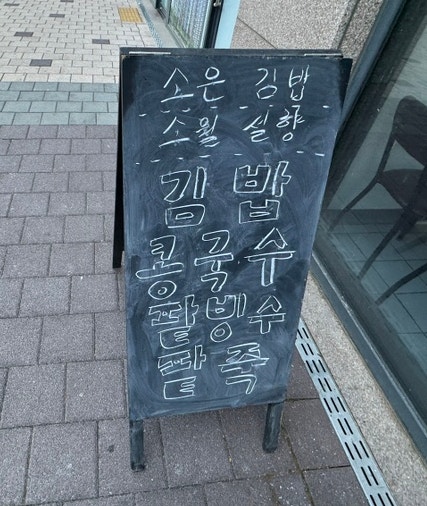 소은 김밥
소월 실향
김밥
콩국수
팥빙수
팥죽